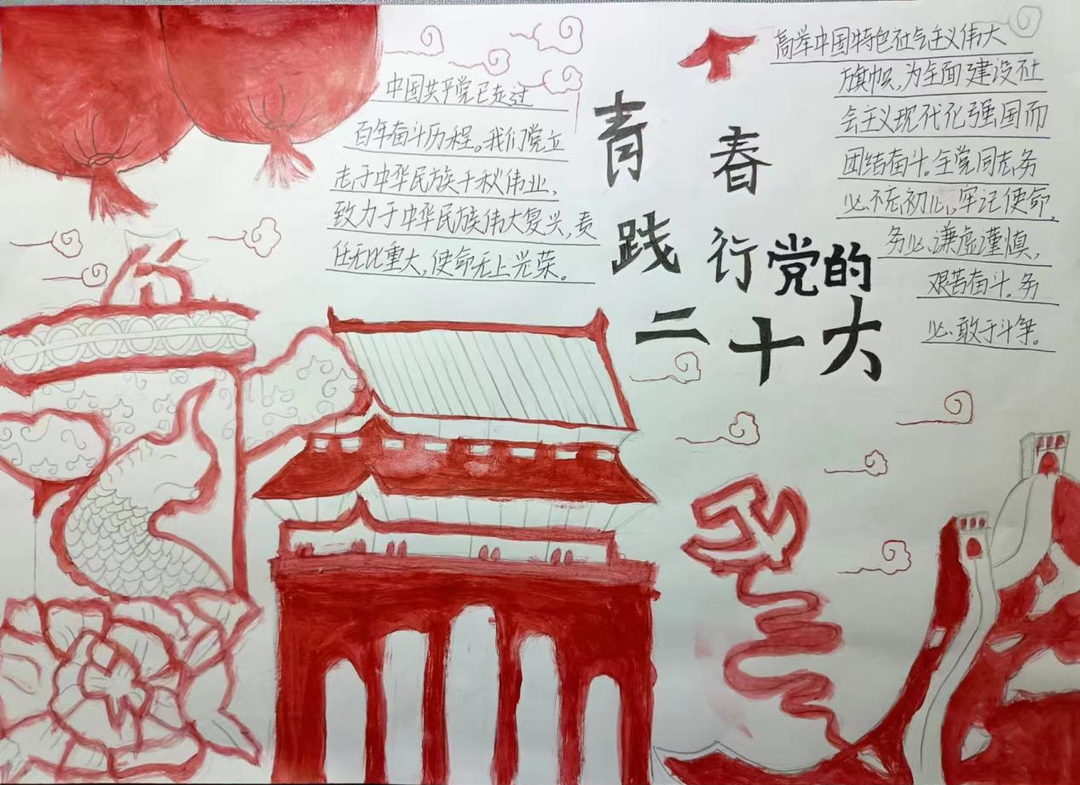 中国共产党已走过
百年奋斗历程。我们党立
志于中华民族千秋伟业,
致力于中华民族伟大复兴,责
任无比重大,使命无上光荣。
青春
践行党的
二十大
高举中国特色社会主义伟大
旗帜,为全面建设社
会主义现代化强国而
团结奋斗。全党同志务
必不忘初心,牢记使命,
务必谦虚谨慎,
艰苦奋斗。务
必敢于斗争。